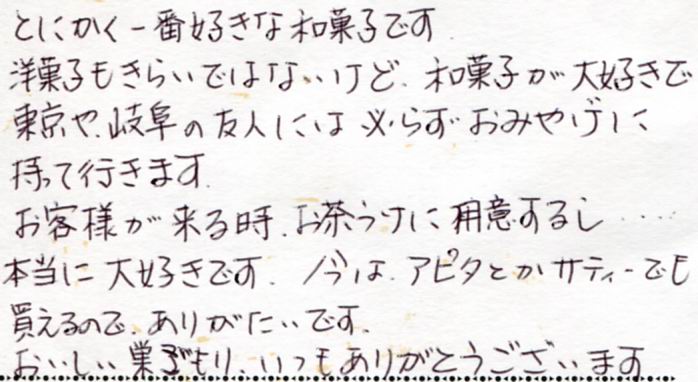 とにかく一番好きな和菓子です.
洋菓子もきらいではないけど、和菓子が大好きで
東京や、岐阜の友人には必らずおみやげに
持って行きます.
お客様が来る時、お茶うけに用意するし……
本当に大好きです. 今は、アピタとかサティーでも
買えるので、ありがたいです.
おいしい巣ごもり、いつもありがとうございます